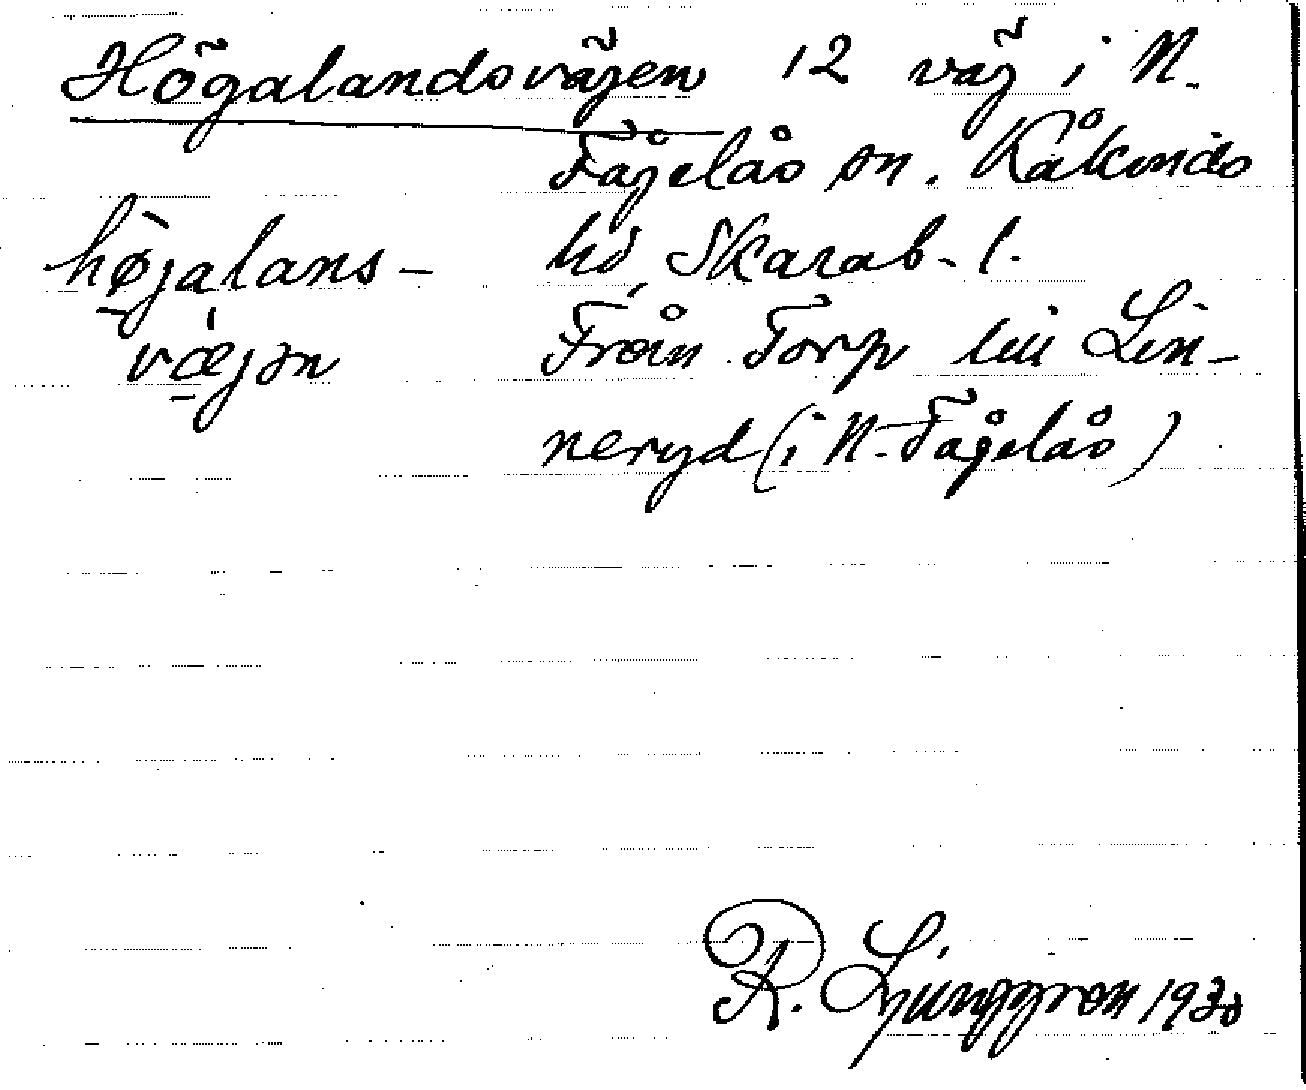 Högalandsvägen 12 väg i N.
Fågelås sn. Kåkinds
hd, Skarab. l.
højalans-
vægən
Från Torp till Lin-
neryd (i N. Fågelås)
R. Ljunggren 1930